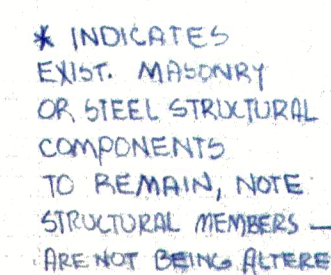 * INDICATES
EXIST. MASONRY
OR STEEL STRUCTURAL
COMPONENTS
TO REMAIN, NOTE
STRUCTURAL MEMBERS —
ARE NOT BEING ALTERE